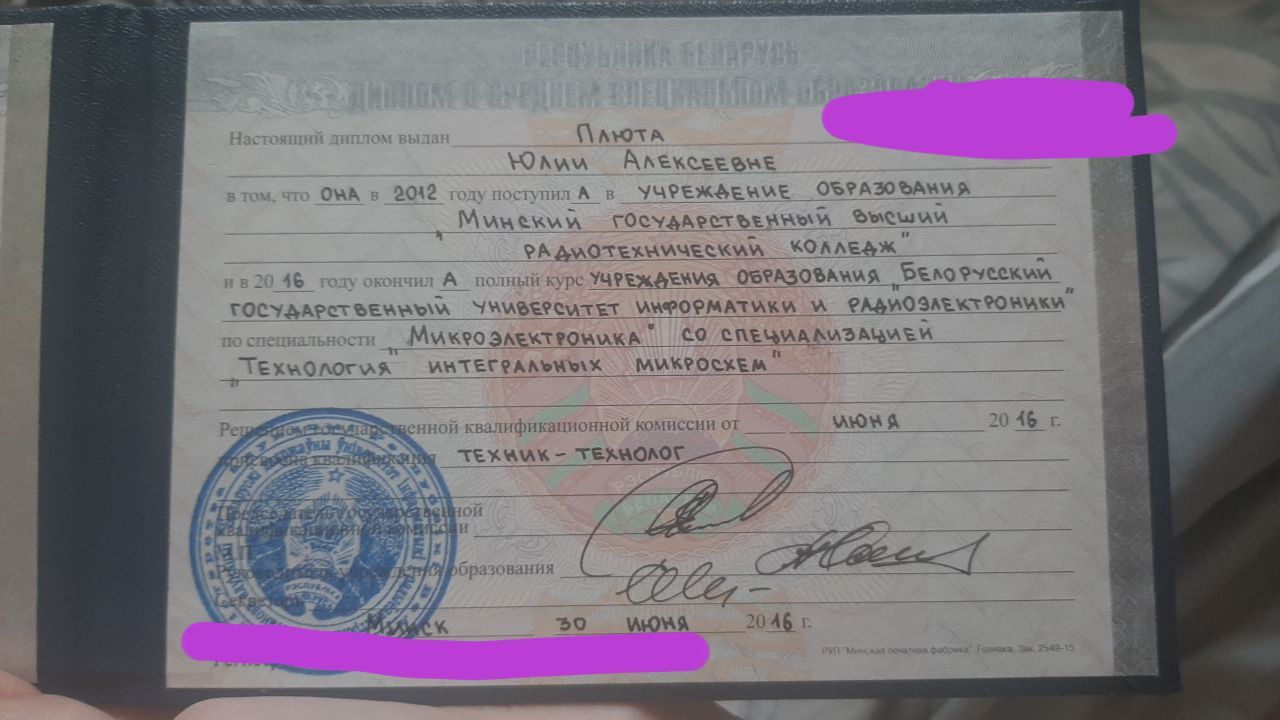 РЕСПУБЛИКА БЕЛАРУСЬ
ДИПЛОМ О СРЕДНЕМ СПЕЦИАЛЬНОМ
Настоящий диплом выдан Плюта
Юлии Алексеевне
в том, что ОНА в 2012 году поступил А в УЧРЕЖДЕНИЕ ОБРАЗОВАНИЯ
„Минский государственный высший
радиотехнический колледж"
и в 2016 году окончил А полный курс учреждения образования „Белорусский
государственный университет информатики и радиоэлектроники"
по специальности „Микроэлектроника" со специализацией
„Технология интегральных микросхем"
Решением государственной квалификационной комиссии от июня 2016 г.
присвоена квалификация техник-технолог
Председатель государственной
квалификационной комиссии
М.П.
Руководитель учреждения образования
Секретарь
Минск 30 июня 2016 г.
РУП "Минская печатная фабрика" Гознака. Зак. 2549-15